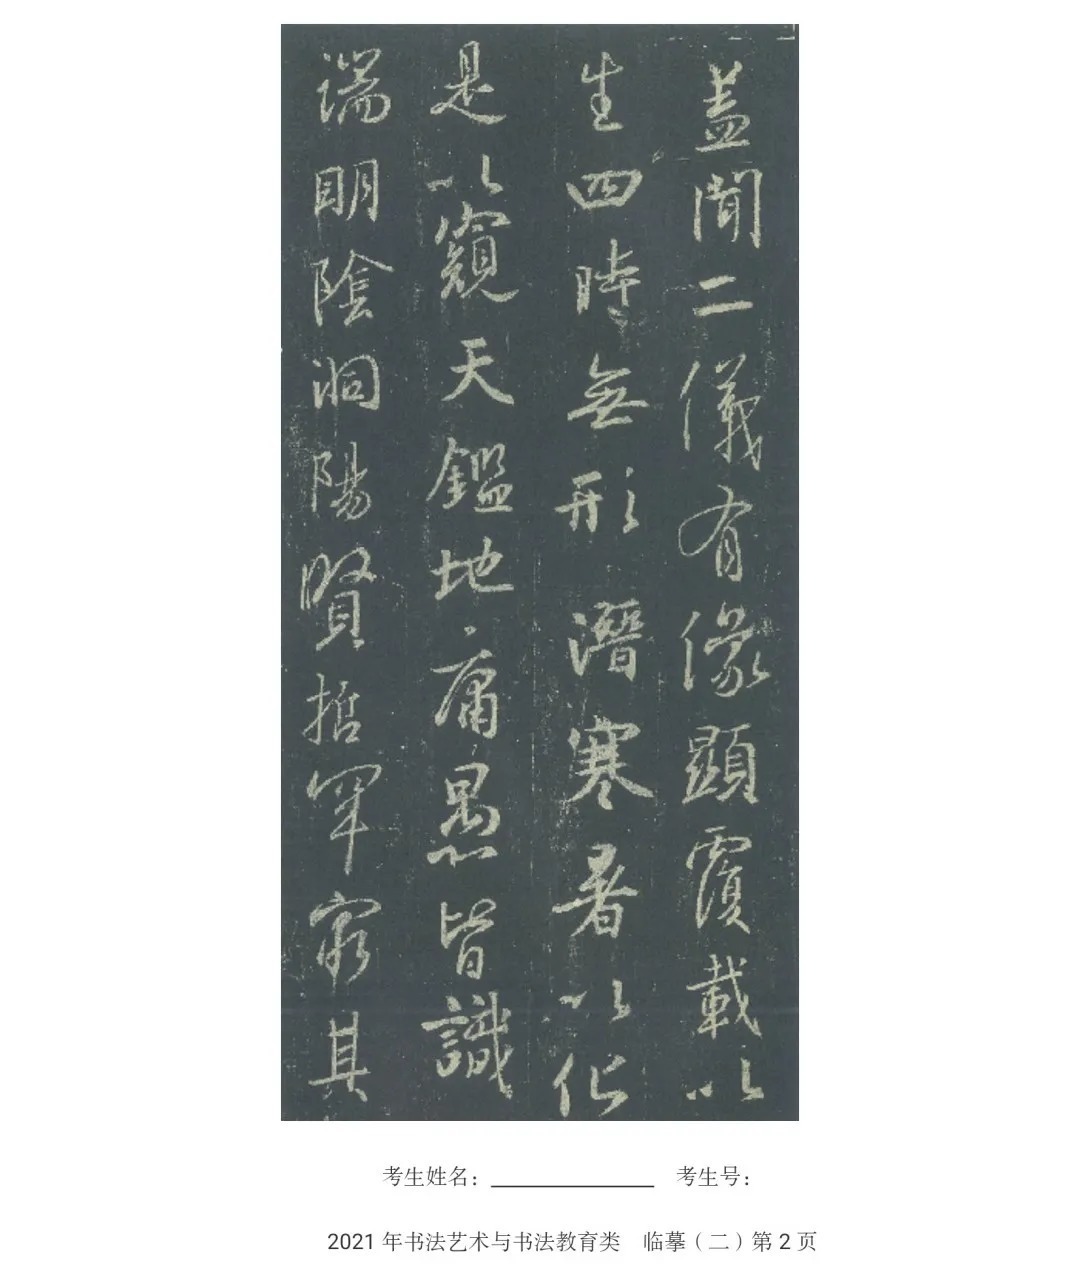 盖聞二儀有像顯覆載以
生四時無形潛寒暑以化
是以窺天鑑地庸愚皆識
端明陰洞陽賢哲罕窮其
考生姓名：　考生号：
2021 年书法艺术与书法教育类　临摹（二）第 2 页